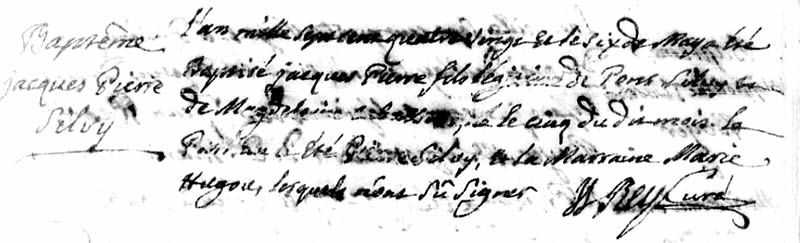 Baptême
jacques Pierre
Silvy
L'an mille sept cent quatre vingt et le six de May a été
Baptisé jacques Pierre fils légitime de Pons Silvy et
de Magdeleine né le cinq du dit mois le
Parrain a été Pierre Silvy, et la Marraine Marie
Hugou, lesquels n'ont sû signer
Rey Curé